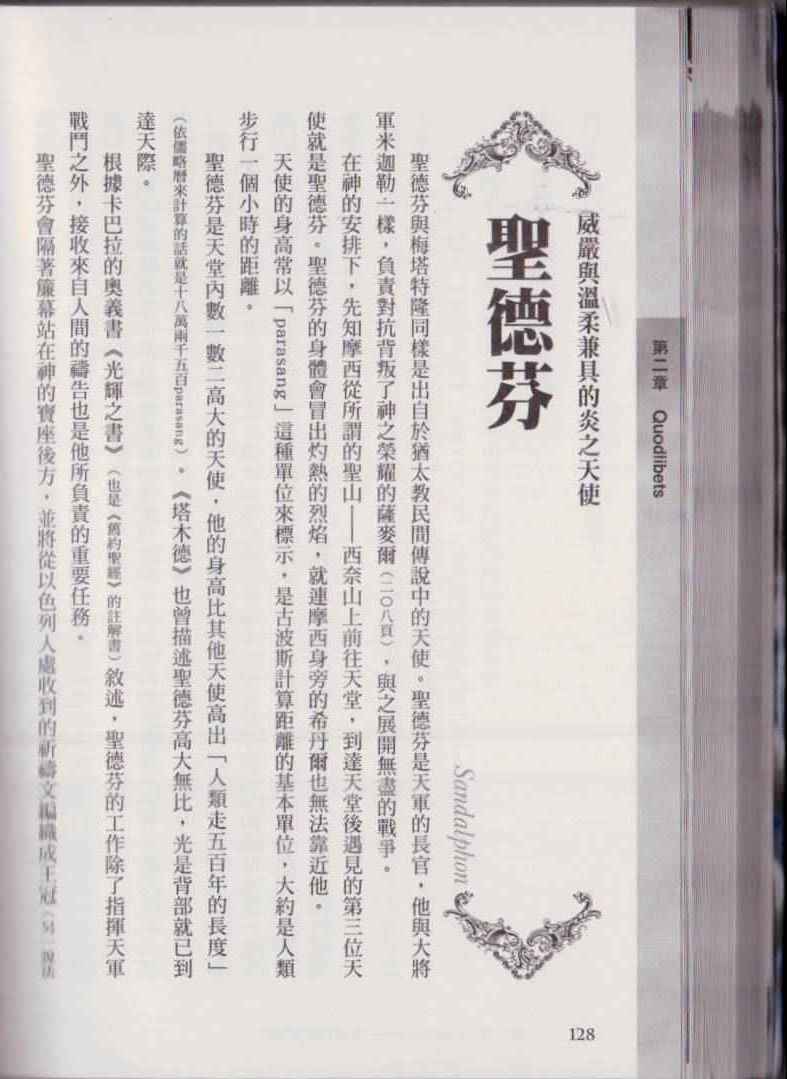 第二章 Quodlibets
威嚴與溫柔兼具的炎之天使
聖德芬
Sandalphon
聖德芬與梅塔特隆同樣是出自於猶太教民間傳說中的天使。聖德芬是天軍的長官，他與大將
軍米迦勒一樣，負責對抗背叛了神之榮耀的薩麥爾（二〇八頁），與之展開無盡的戰爭。
在神的安排下，先知摩西從所謂的聖山——西奈山上前往天堂，到達天堂後遇見的第三位天
使就是聖德芬。聖德芬的身體會冒出灼熱的烈焰，就連摩西身旁的希丹爾也無法靠近他。
天使的身高常以「parasang」這種單位來標示，是古波斯計算距離的基本單位，大約是人類
步行一個小時的距離。
聖德芬是天堂內數一數二高大的天使，他的身高比其他天使高出「人類走五百年的長度」
（依儒略曆來計算的話就是十八萬兩千五百parasang）。《塔木德》也曾描述聖德芬高大無比，光是背部就已到
達天際。
根據卡巴拉的奧義書《光輝之書》（也是《舊約聖經》的註解書）敘述，聖德芬的工作除了指揮天軍
戰鬥之外，接收來自人間的禱告也是他所負責的重要任務。
聖德芬會隔著簾幕站在神的寶座後方，並將從以色列人處收到的祈禱文編織成王冠（另一說法
128